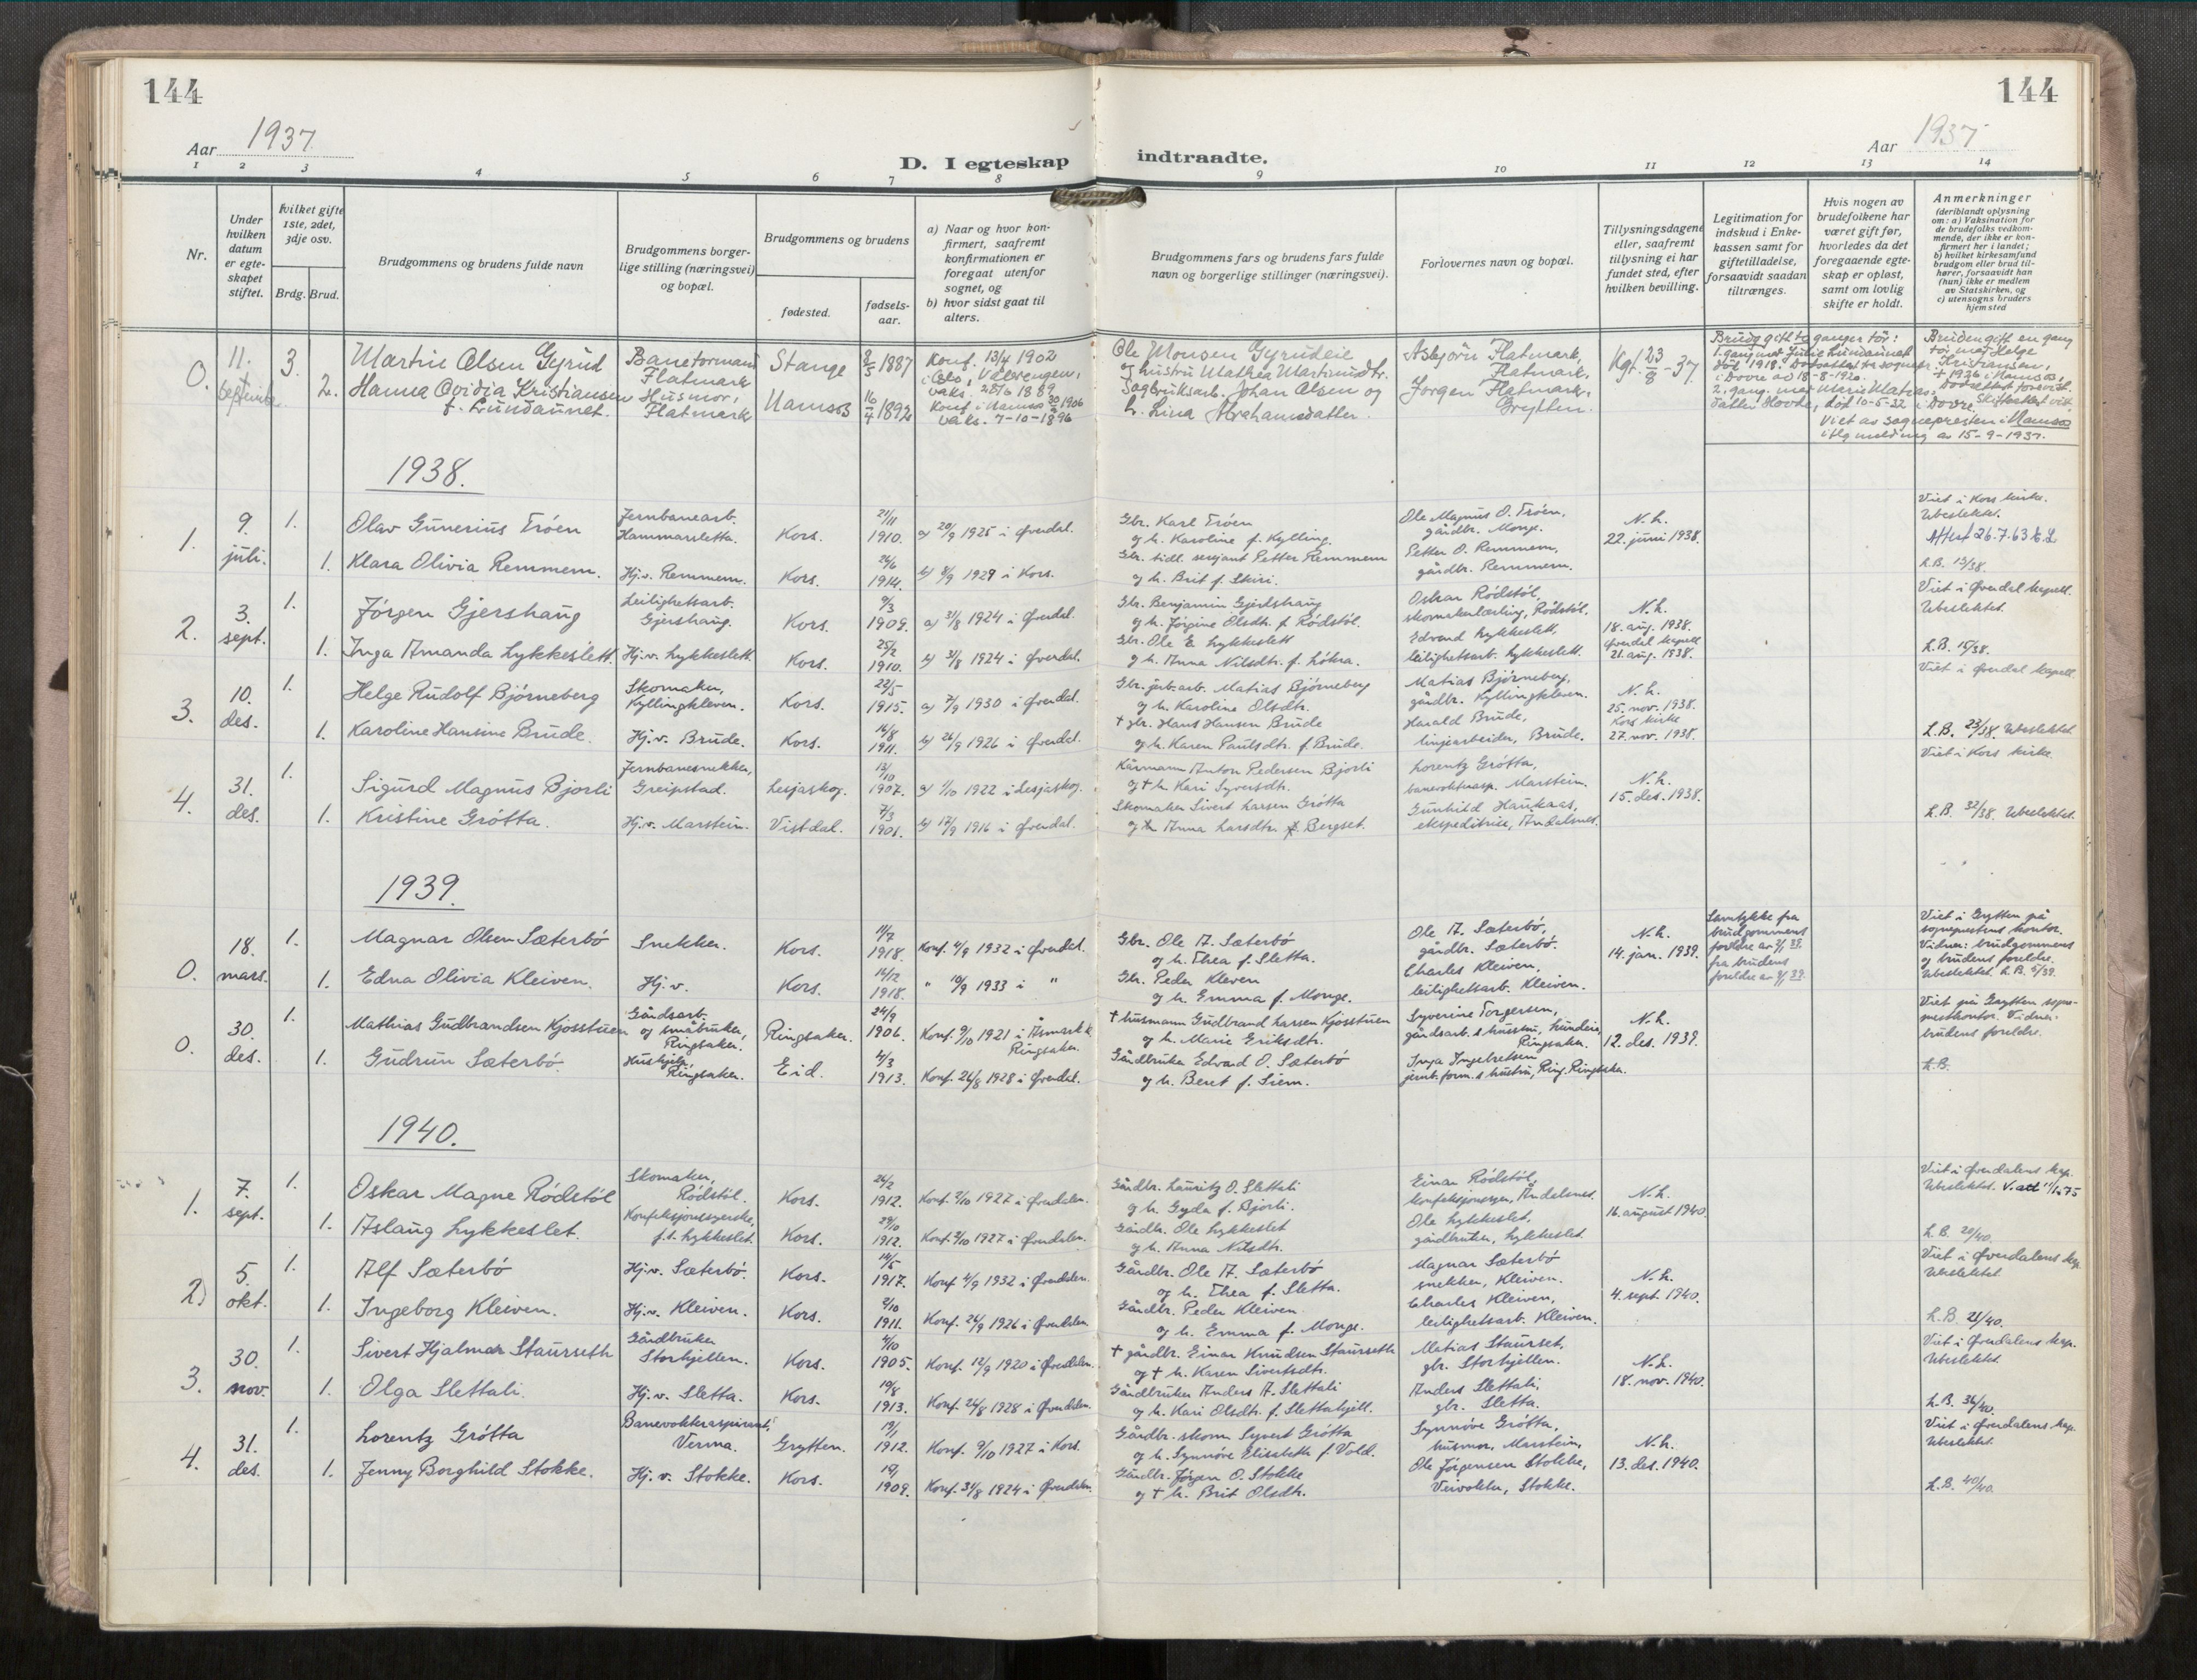 144
144
Aar 1937.
Aar 1937
D. I egteskap indtraadte.
1 2 3 4 5 6 7 8 9 10 11 12 13 14
Nr.
Under hvilken datum er egteskapet stiftet.
Hvilket gifte 1ste, 2det, 3dje osv.
Brdg. Brud.
Brudgommens og brudens fulde navn
Brudgommens borgerlige stilling (næringsvei) og bopæl.
Brudgommens og brudens
fødested.
fødselsaar.
a) Naar og hvor konfirmert, saafremt konfirmationen er foregaat utenfor sognet, og
b) hvor sidst gaat til alters.
Brudgommens fars og brudens fars fulde navn og borgerlige stillinger (næringsvei).
Forlovernes navn og bopæl.
Tillysningsdagene eller, saafremt tillysning ei har fundet sted, efter hvilken bevilling.
Legitimation for indskud i Enkekassen samt for giftetilladelse, forsaavidt saadan tiltrænges.
Hvis nogen av brudefolkene har været gift før, hvorledes da det foregaaende egteskap er opløst, samt om lovlig skifte er holdt.
Anmerkninger
(deriblandt oplysning om: a) Vaksination for de brudefolks vedkommende, der ikke er konfirmert her i landet; b) hvilket kirkesamfund brudgom eller brud tilhører, forsaavidt han (hun) ikke er medlem av Statskirken, og c) utensogns bruders hjemsted
0. 11. september 3. Martin Olsen Gyrud Baneformann Flatmark Stange 2/5 1887 Konf. 13/4 1902 i Oslo, Vålerengen, vaks. 28/6 1889
Ole Monsen Gyrudeie og hustru Mathea Martinusdtr. Asbjörn Flatmark, Flatmark, Kgf. 23/8-37
2. Hanna Ovidia Kristiansen f. Lundaunet. Husmor, Flatmark Namsos 16/7 1892 Konf. i Namsos 30/9 1906 vaks. 7-10-1896
Sagbruksarb. Johan Olsen og h. Lina Abrahamsdatter. Jörgen Flatmark, Grytten.
Brudg. gift to ganger før: 1. gang med Julie Lundaunet død 1918.
i Dovre av 18-8-1920.
2. gang med Marie Matiasdatter Hovde, död 10-5-32 i Dovre. Skifteattest vist.
Bruden gift en gang før med Helge Kristiansen, † 1926 i Namsos,
Viet av sognepresten i Namsos iflg melding av 15-9-1937.
1938.
1. 9. juli. 1. Olav Gunerius Tröen Jernbanearb. Hammarsletta. Kors. 21/11 1910. a) 20/9 1925 i Øverdal.
Gbr. Karl Tröen og h. Karoline f. Kylling. Ole Magnus O. Tröen, gårdbr. Monge. N.h. 22. juni 1938. Viet i Kors kirke. Ubeslektet.
Attest 26.7.63
1. Klara Olivia Remmem. Hj.v. Remmem. Kors. 26/6 1914. b) 8/9 1929 i Kors.
Gbr. tidl. sersjant Petter Remmem og h. Brit f. Skiri. Petter O. Remmem, gårdbr. Remmem. L.B. 13/38.
2. 3. sept. 1. Jörgen Gjershaug Leilighetsarb. Gjershaug. Kors. 9/3 1909. a) 31/8 1924 i Øverdal.
Gbr. Benjamin Gjershaug og h. Jörgine Olsdtr. f. Rödstöl. Oskar Rödstöl, skomakerlærling, Rödstöl. N.h. 18. aug. 1938. Viet i Øverdal kapell. Ubeslektet.
1. Inga Amanda Lykkeslett. Hj.v. Lykkeslett. Kors. 25/2 1910. b) 31/8 1924 i Øverdal.
Gbr. Ole E Lykkeslett og h. Anna Nilsdtr. f. Lökra. Edvard Lykkeslett, leilighetsarb. Lykkeslett. Øverdal kapell 21. aug. 1938. L.B. 15/38.
3. 10. des. 1. Helge Rudolf Björneberg Skomaker, Kyllingkleven. Kors. 22/5 1915. a) 7/9 1930 i Øverdal.
Gbr. jernb.arb. Matias Björneberg og h. Karoline Olsdtr. Matias Björneberg, gårdbr. Kyllingkleven. N.h. 25. nov. 1938. Viet i Øverdal kapell.
1. Karoline Hansine Brude. Hj.v. Brude. Kors. 14/8 1911. b) 26/9 1926 i Øverdal.
† gbr. Hans Hansen Brude og h. Karen Paulsdtr. f. Brude. Harald Brude, linjearbeider, Brude. Kors kirke 27. nov. 1938. L.B. 23/38. Ubeslektet
4. 31. des. 1. Sigurd Magnus Bjorli Jernbanesnekker, Greipstad. Lesjaskog. 13/10 1907. a) 1/10 1922 i Lesjaskog.
Kårmann Anton Pedersen Bjorli og † h. Kari Syversdtr. Lorentz Grötta, banevoktrasp. Marstein. N.h. 15. des. 1938. Viet i Kors kirke.
1. Kristine Grötta. Hj.v. Marstein. Vistdal. 7/3 1901. b) 17/9 1916 i Øverdal.
Skomaker Sivert Larsen Grötta og h. Anna Larsdtr. f. Bergset. Gunhild Haukaas, ekspeditrise, Åndalsnes. L.B. 32/38. Ubeslektet.
1939.
0. 18. mars. 1. Magnar Olsen Sæterbö Snekker. Kors. 11/7 1918. Konf. 4/9 1932 i Øverdal.
Gbr. Ole A. Sæterbö og h. Thea f. Sletta. Ole A. Sæterbö, gårdbr. Sæterbö. N.h. 14. jan. 1939. Samtykke fra brudgommens foreldre av
fra brudens foreldre av
Viet i Grytten på sogneprestens kontor. Vidner: brudgommens og brudens foreldre. Ubeslektet. L.B. 5/39.
1. Edna Olivia Kleiven. Hj.v. Kors. 14/12 1918. " 10/9 1933 i "
Gbr. Peder Kleven og h. Emma f. Monge. Charles Kleiven, leilighetsarb. Kleiven.
0. 30. des. 1. Mathias Gudbrandsen Kjosstuen Gårdsarb. og småbruker, Ringsaker. Ringsaker. 24/9 1906. Konf. 9/10 1921 i Åsmark k. Ringsaker.
† husmann Gudbrand Larsen Kjosstuen og h. Marie Eriksdtr. Syverine Torgersen, gårdsarb.s hustru, Ringsaker. N.h. 12. des. 1939. Viet på Grytten sogneprestkontor. Vidner: brudens foreldre.
1. Gudrun Sæterbö. Hushjelp, Ringsaker. Eid. 4/3 1913. Konf. 26/8 1928 i Øverdal.
Gårdbruker Edvard O. Sæterbö og h. Beret f. Siem. Inga Ingebretsen jernb.form.s hustru, Ring. Ringsaker. L.B.
1940.
1. 7. sept. 1. Oskar Magne Rödstöl Skomaker, Rödstöl. Kors. 26/2 1912. Konf. 2/10 1927 i Øverdalen.
Gårdbr. Lauritz O. Slettali og h. Gyda f. Bjorli. Einar Rödstöl, Åndalsnes. N.h. 16. august 1940. Viet i Øverdalens kap. Ubeslektet. V. att 11/1 75
1. Aslaug Lykkeslet. Konfeksjonssyerske, f.t. Lykkeslet. Kors. 29/10 1912. Konf. 2/10 1927 i Øverdalen.
Gårdbr. Ole Lykkeslet og h. Anna Nilsdtr. Ole Lykkeslet, gårdbruker, Lykkeslet L.B. 20/40.
2) 5. okt. 1. Alf Sæterbö Hj.v. Sæterbö. Kors. 14/5 1917. Konf. 4/9 1932 i Øverdalen.
Gårdbr. Ole A. Sæterbö og h. Thea f. Sletta. Magnar Sæterbö snekker, Kleiven. N.h. 4. sept. 1940. Viet i Øverdalens kap. Ubeslektet
1. Ingeborg Kleiven. Hj.v. Kleiven. Kors. 2/10 1911. Konf. 26/9 1926 i Øverdalen.
Gårdbr. Peder Kleiven. og h. Emma f. Monge. Charles Kleiven, leilighetsarb. Kleiven. L.B. 21/40.
3. 30. nov. 1. Sivert Hjalmar Staurseth Gårdbruker Storhjellen. Kors. 4/10 1905. Konf. 12/9 1920 i Øverdalen.
† gårdbr. Einar Knudsen Staurseth og † h. Karen Sivertsdtr. Matias Staurset, gbr. Storhjellen. N.h. 18. nov. 1940. Viet i Øverdalens kap. Ubeslektet
1. Olga Slettali. Hj.v. Sletta. Kors. 19/8 1913. Konf. 26/8 1928 i Øverdalen.
Gårdbruker Anders A. Slettali og h. Kari Olsdtr. f. Slettahjell. Anders Slettali, gbr. Sletta. L.B. 36/40.
4. 31. des. 1. Lorentz Grötta Banevokteraspirant, Verma. Grytten. 19/1 1912. Konf. 9/10 1927 i Kors.
Gårdbr. skom Syvert Grötta og h. Synnöve Elisabeth f. Vold. Synnöve Grötta, husmor, Marstein, N.h. 13. des. 1940. Viet i Øverdalens kap. Ubeslektet.
1. Jenny Borghild Stokke. Hj.v. Stokke. Kors. 1909. Konf. 31/8 1924 i Øverdalen.
Gårdbr. Jörgen O. Stokke og † h. Brit Olsdtr. Ole Jörgensen Stokke, Veivokter, Stokke. L.B. 40/40.